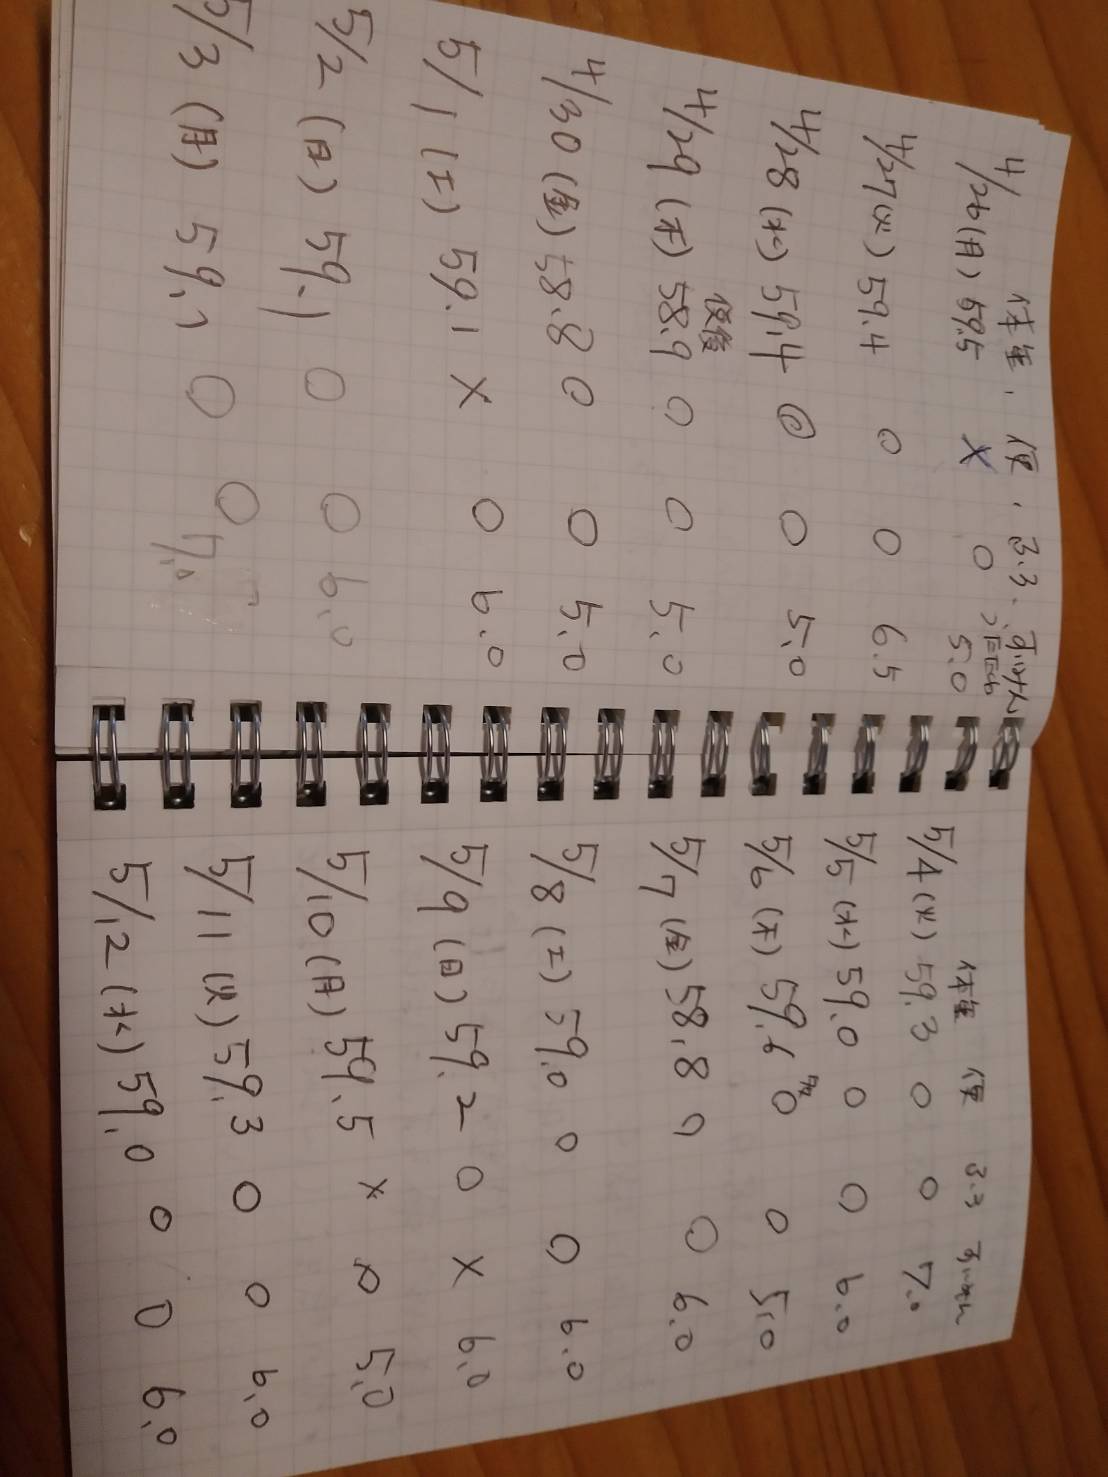 体重、便、3.3、すいみん
4/26(月) 59.5 × 0 5.0
4/27(火) 59.4 0 0 6.5
4/28(水) 59.4 ◎ 0 5.0
便後
4/29(木) 58.9 0 0 5.0
4/30(金) 58.8 0 0 5.0
5/1(土) 59.1 × 0 6.0
5/2(日) 59.1 0 0 6.0
5/3(月) 59.1 0 0 7.0
体重 便 3.3 すいみん
5/4(火) 59.3 0 0 7.0
5/5(水) 59.0 0 0 6.0
5/6(木) 59.6 0 0 5.0
5/7(金) 58.8 0 0 6.0
5/8(土) 59.0 0 0 6.0
5/9(日) 59.2 0 × 6.0
5/10(月) 59.5 × 0 5.0
5/11(火) 59.3 0 0 6.0
5/12(水) 59.0 0 0 6.0